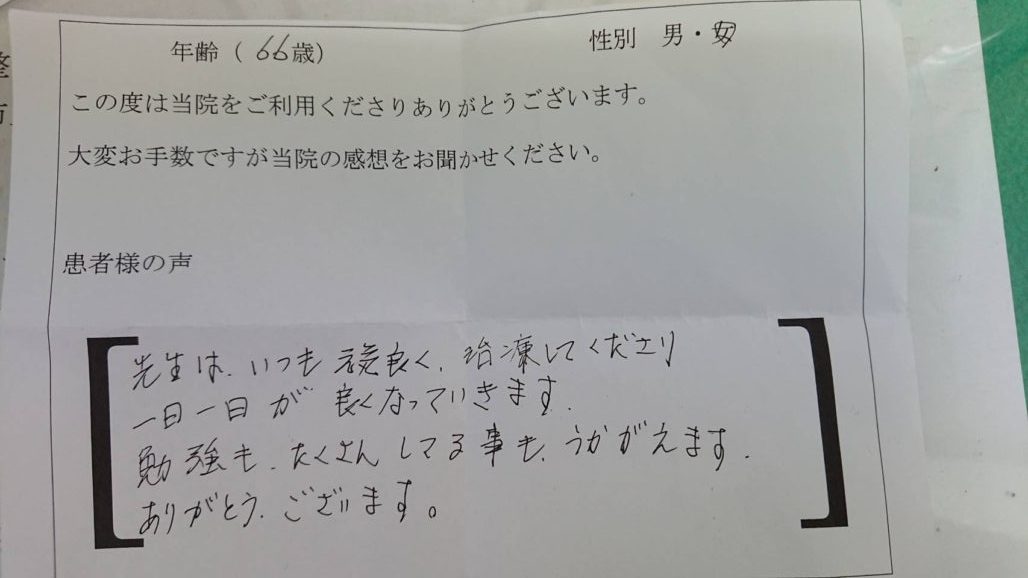 年齢( 66歳)
性別 男・女
この度は当院をご利用くださりありがとうございます。
大変お手数ですが当院の感想をお聞かせください。
患者様の声
先生は、いつも 良く、治療してくださり
一日一日が 良くなっていきます.
勉強も、たくさん してる事も、うかがえます.
ありがとう、ございます。